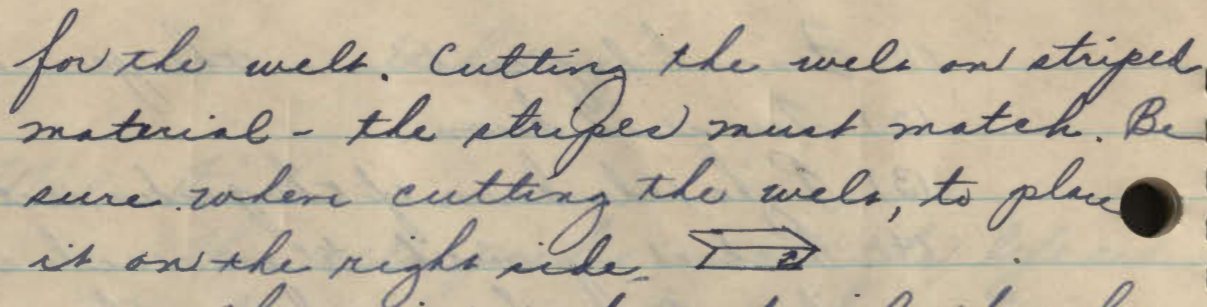 for the welt. Cutting the welt on striped
material - the stripes must match. Be
sure when cutting the welt, to place
it on the right side.